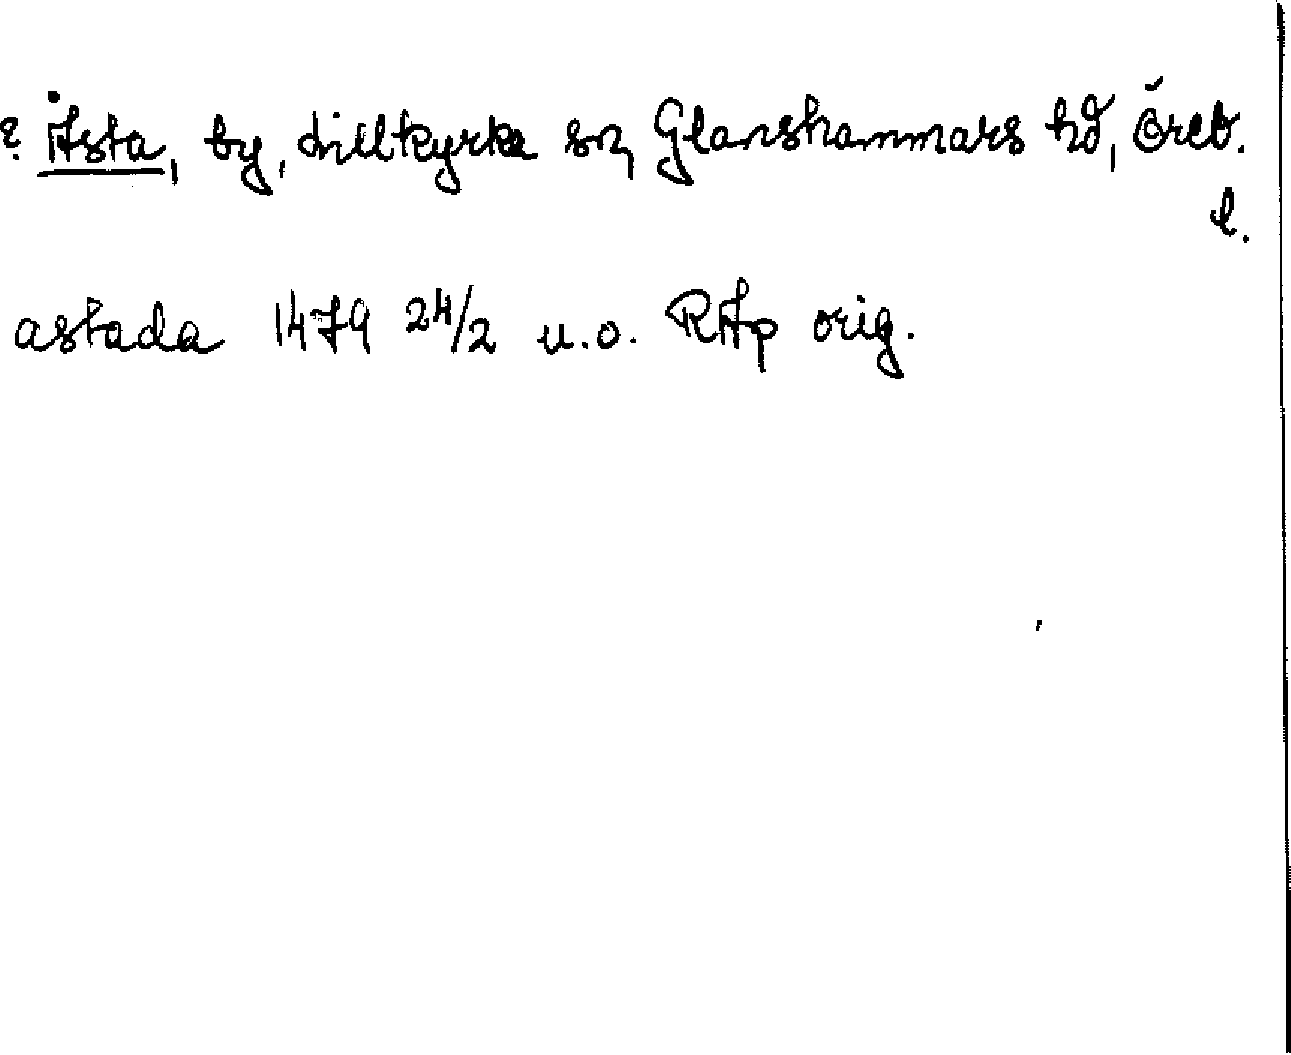 ? Åsta, by, Lillkyrka sn, Glanshammars hd, Öreb.
l.
astada 1479 24/2 u.o. RAp orig.